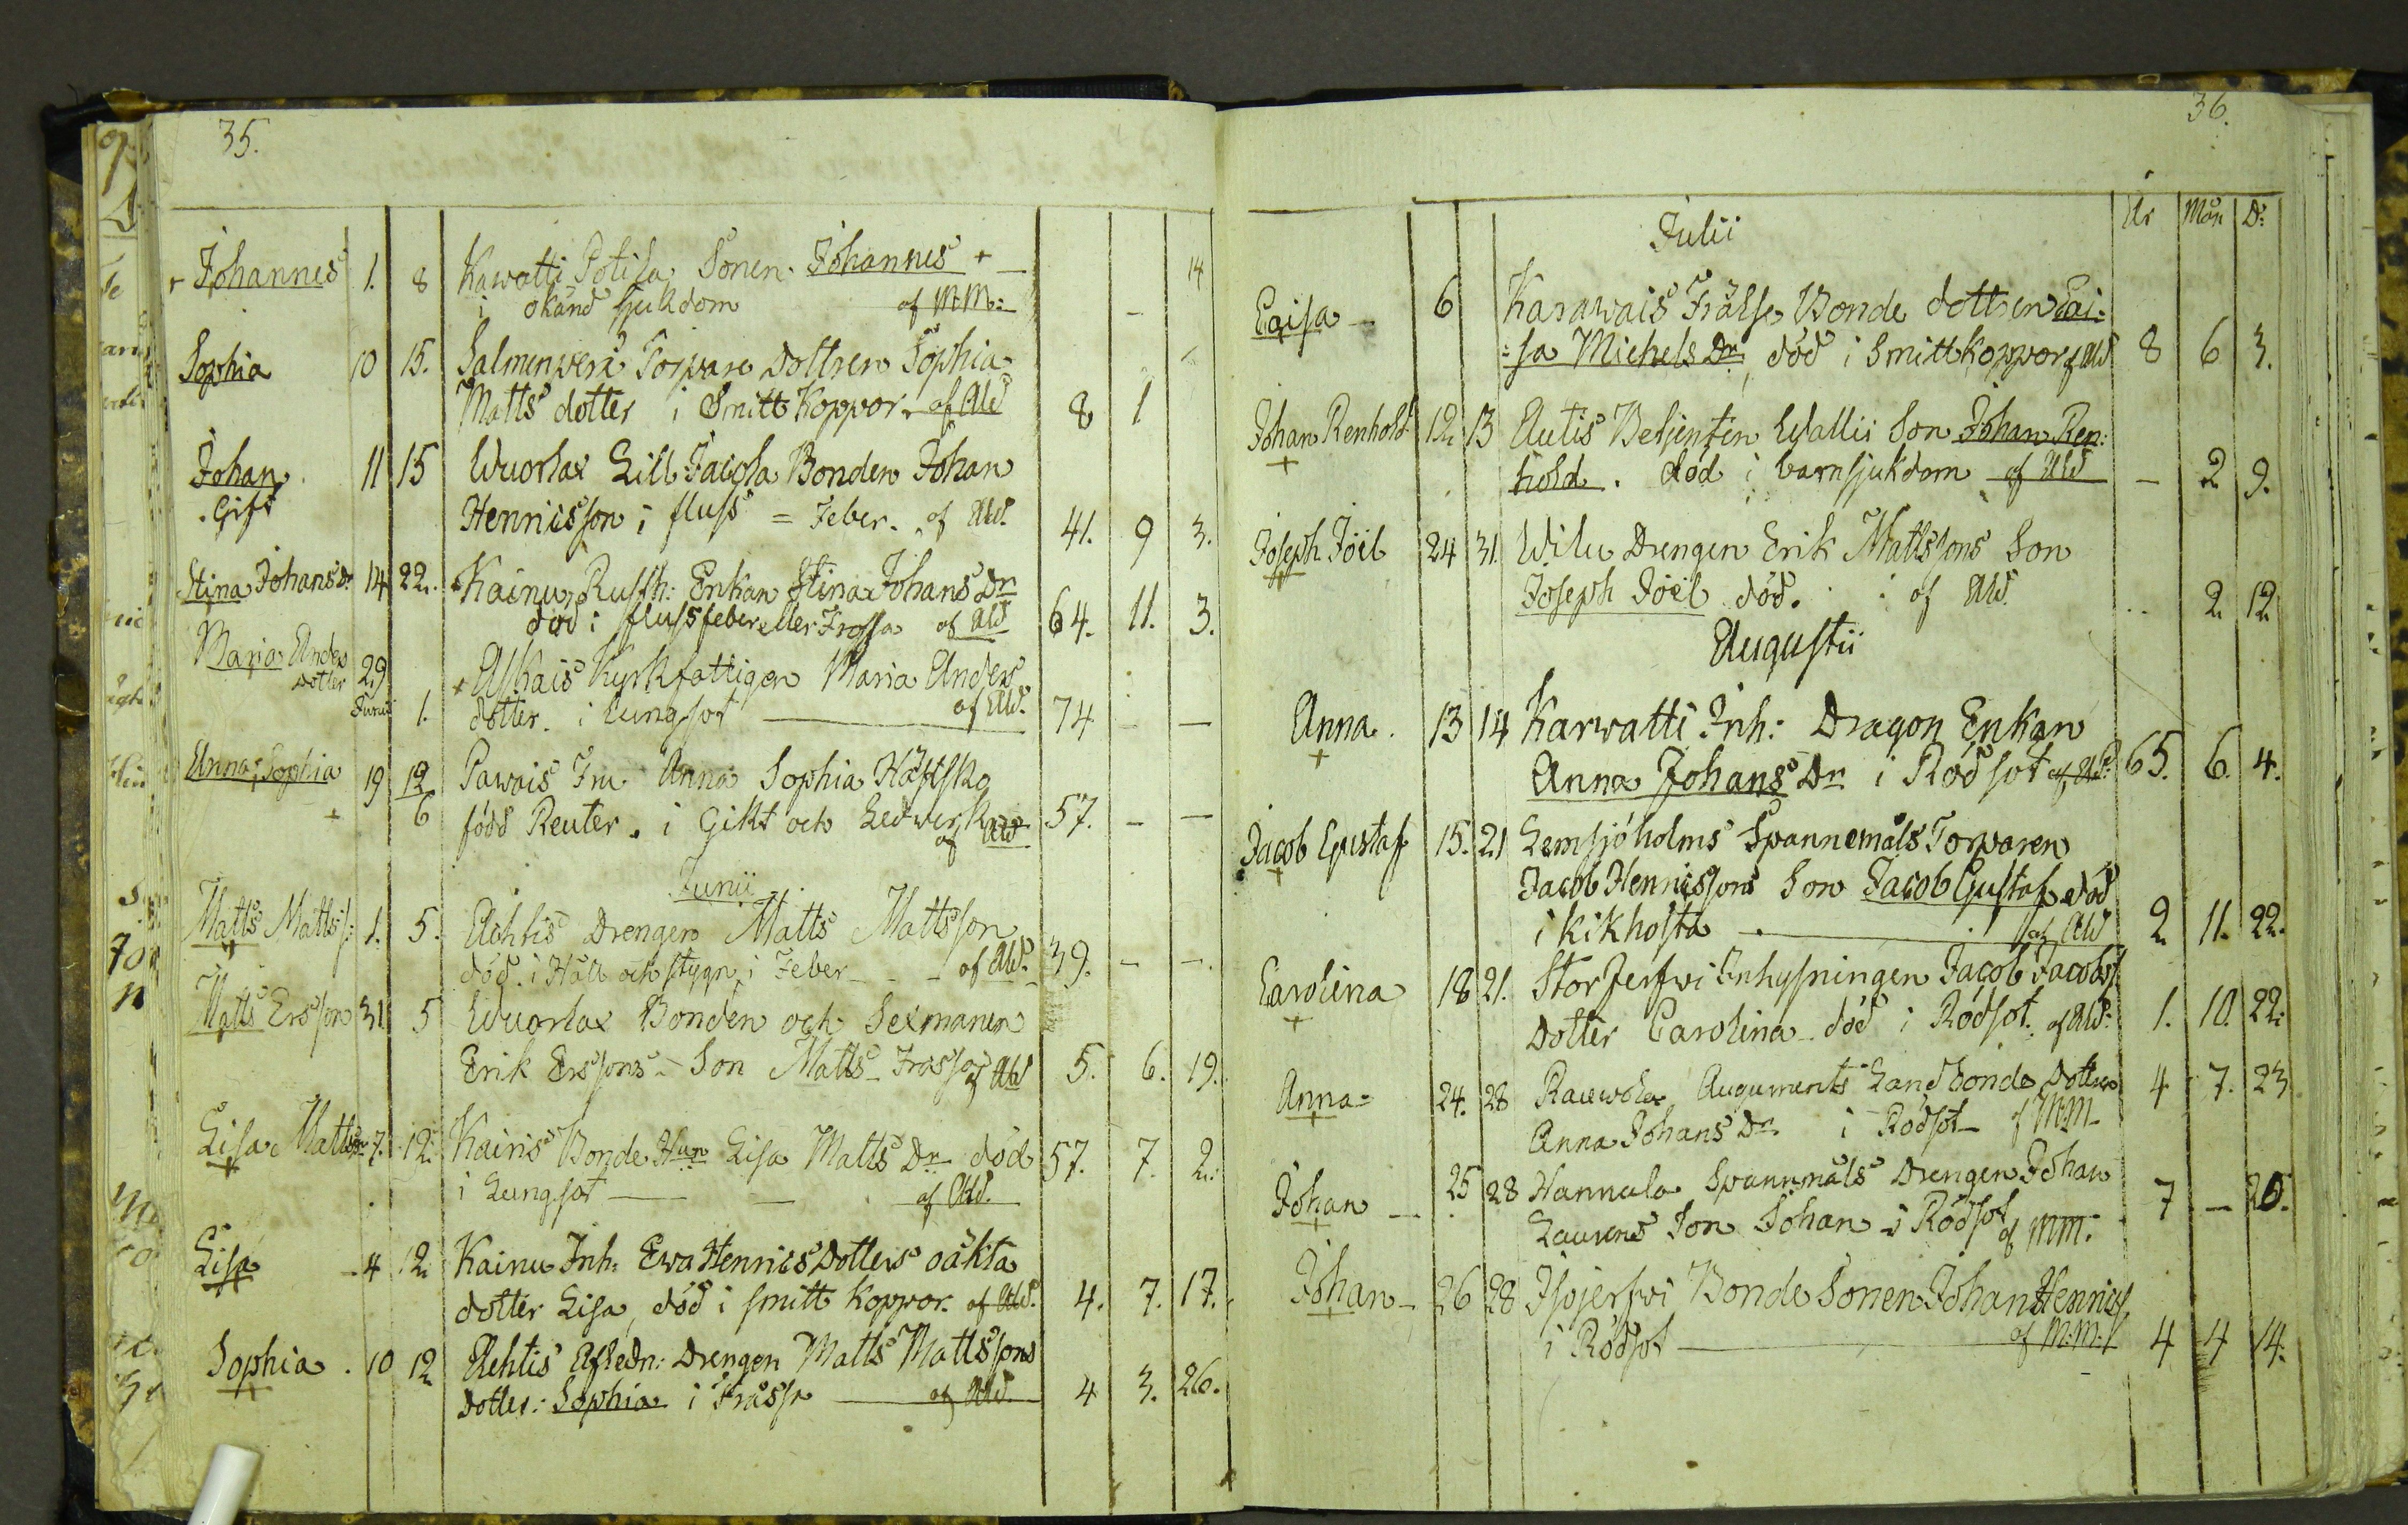 35.
+ Johannes 1. 8 Kawatti Potila Sonen Johannes + 14
i okänd Sjukdom af M.M.: -
Sophia 10 15. Salmenperä Torpare Dottren Sophia
Matts dotter i Smitt Koppor. af Ald 8 1
Johan 11 15 Wuorlax Lill Jacola Bonden Johan
Gift Henricsson i fluss = Feber. af Ald. 41. 9 3.
Stina Johans Dr 14 22. Kainu Rusth: Enkan Stina Johans Dr
död i flussfeber eller Frossa af Ald 64. 11. 3.
Maria Anders
dotter 29 + Askais Kyrkfattigen Maria Anders
Junii 1. dotter i Lungsot af Ald. 74 - -
Anna Sophia 19 12 Pawais Fru Anna Sophia Hästsko
+ 6 född Reuter. i Gikt och Ledwerk af Ald 57. - -
Junii
Matts Mattss: 1. 5. Achtis Drengen Matts Mattsson
+ död i Håll och stygn i Feber - - af Ald. 39. - -
Matts Ersson 31 5 Wuorlax Bonden och Sexmanen
Erik Erssons Son Matts Frassa af Ald 5. 6. 19.
Lisa Matts Dr 7. 12. Kairis Bonde Hun Lisa Matts Dr död 57. 7. 2.
+ i Lungsot - - af Ald.
Lisa - 4 12 Kainu Inh: Ewa Henrics Dotters oäkta
+ dotter Lisa, död i smitt koppor. af Ald. 4. 7. 17.
Sophia . 10 12 Aehtis Afledn: Drengen Matts Mattssons
+ dotter: Sophia i Frässa af Ald. 4 3. 26.
36.
Julii År Mån D:
Caisa - 6 Karawais Frälse Bonde dottren Cai=
=sa Michels Dr, död i Smittkoppor af Ald 8 6 3.
Johan Renhold 12 13 Autis Betjenten Wallii Son Johan Ren:
+ hold. död i barnsjukdom af Ald - 2 9.
Joseph Joël 24 31. Wilu Drengen Erik Mattssons Son
+ Joseph Joël död. i af Ald. .. 2 12
Augustii
Anna. 13 14 Karwatti Inh: Dragon Enkan
+ Anna Johans Dr i Rödsot af Ald: 65. 6. 4.
Jacob Gustaf 15. 21 Lemsjöholms Spannemåls Torparen
+ Jacob Henricssons Son Jacob Gustaf död
i kikhosta af Ald 2 11. 22.
Carolina 18 21. Stor Jerfvi Inhysningen Jacob Jacobss
+ Dotter Carolina död i Rödsot. af Ald: 1. 10. 22.
Anna= 24. 28 Rauwola Auguments Landbonde Dotter 4 7. 23
+ Anna Johans Dr i Rodsot af MM
Johan - 25 28 Hannula Spannmåls Drengen Johan
+ Laurens Son Johan i Rödsot af MM. 7 - 25.
Johan - 26 28 Isojerfvi Bonde Sonen Johan Henricss
+ i Rödsot af M:M: 4 4 14.